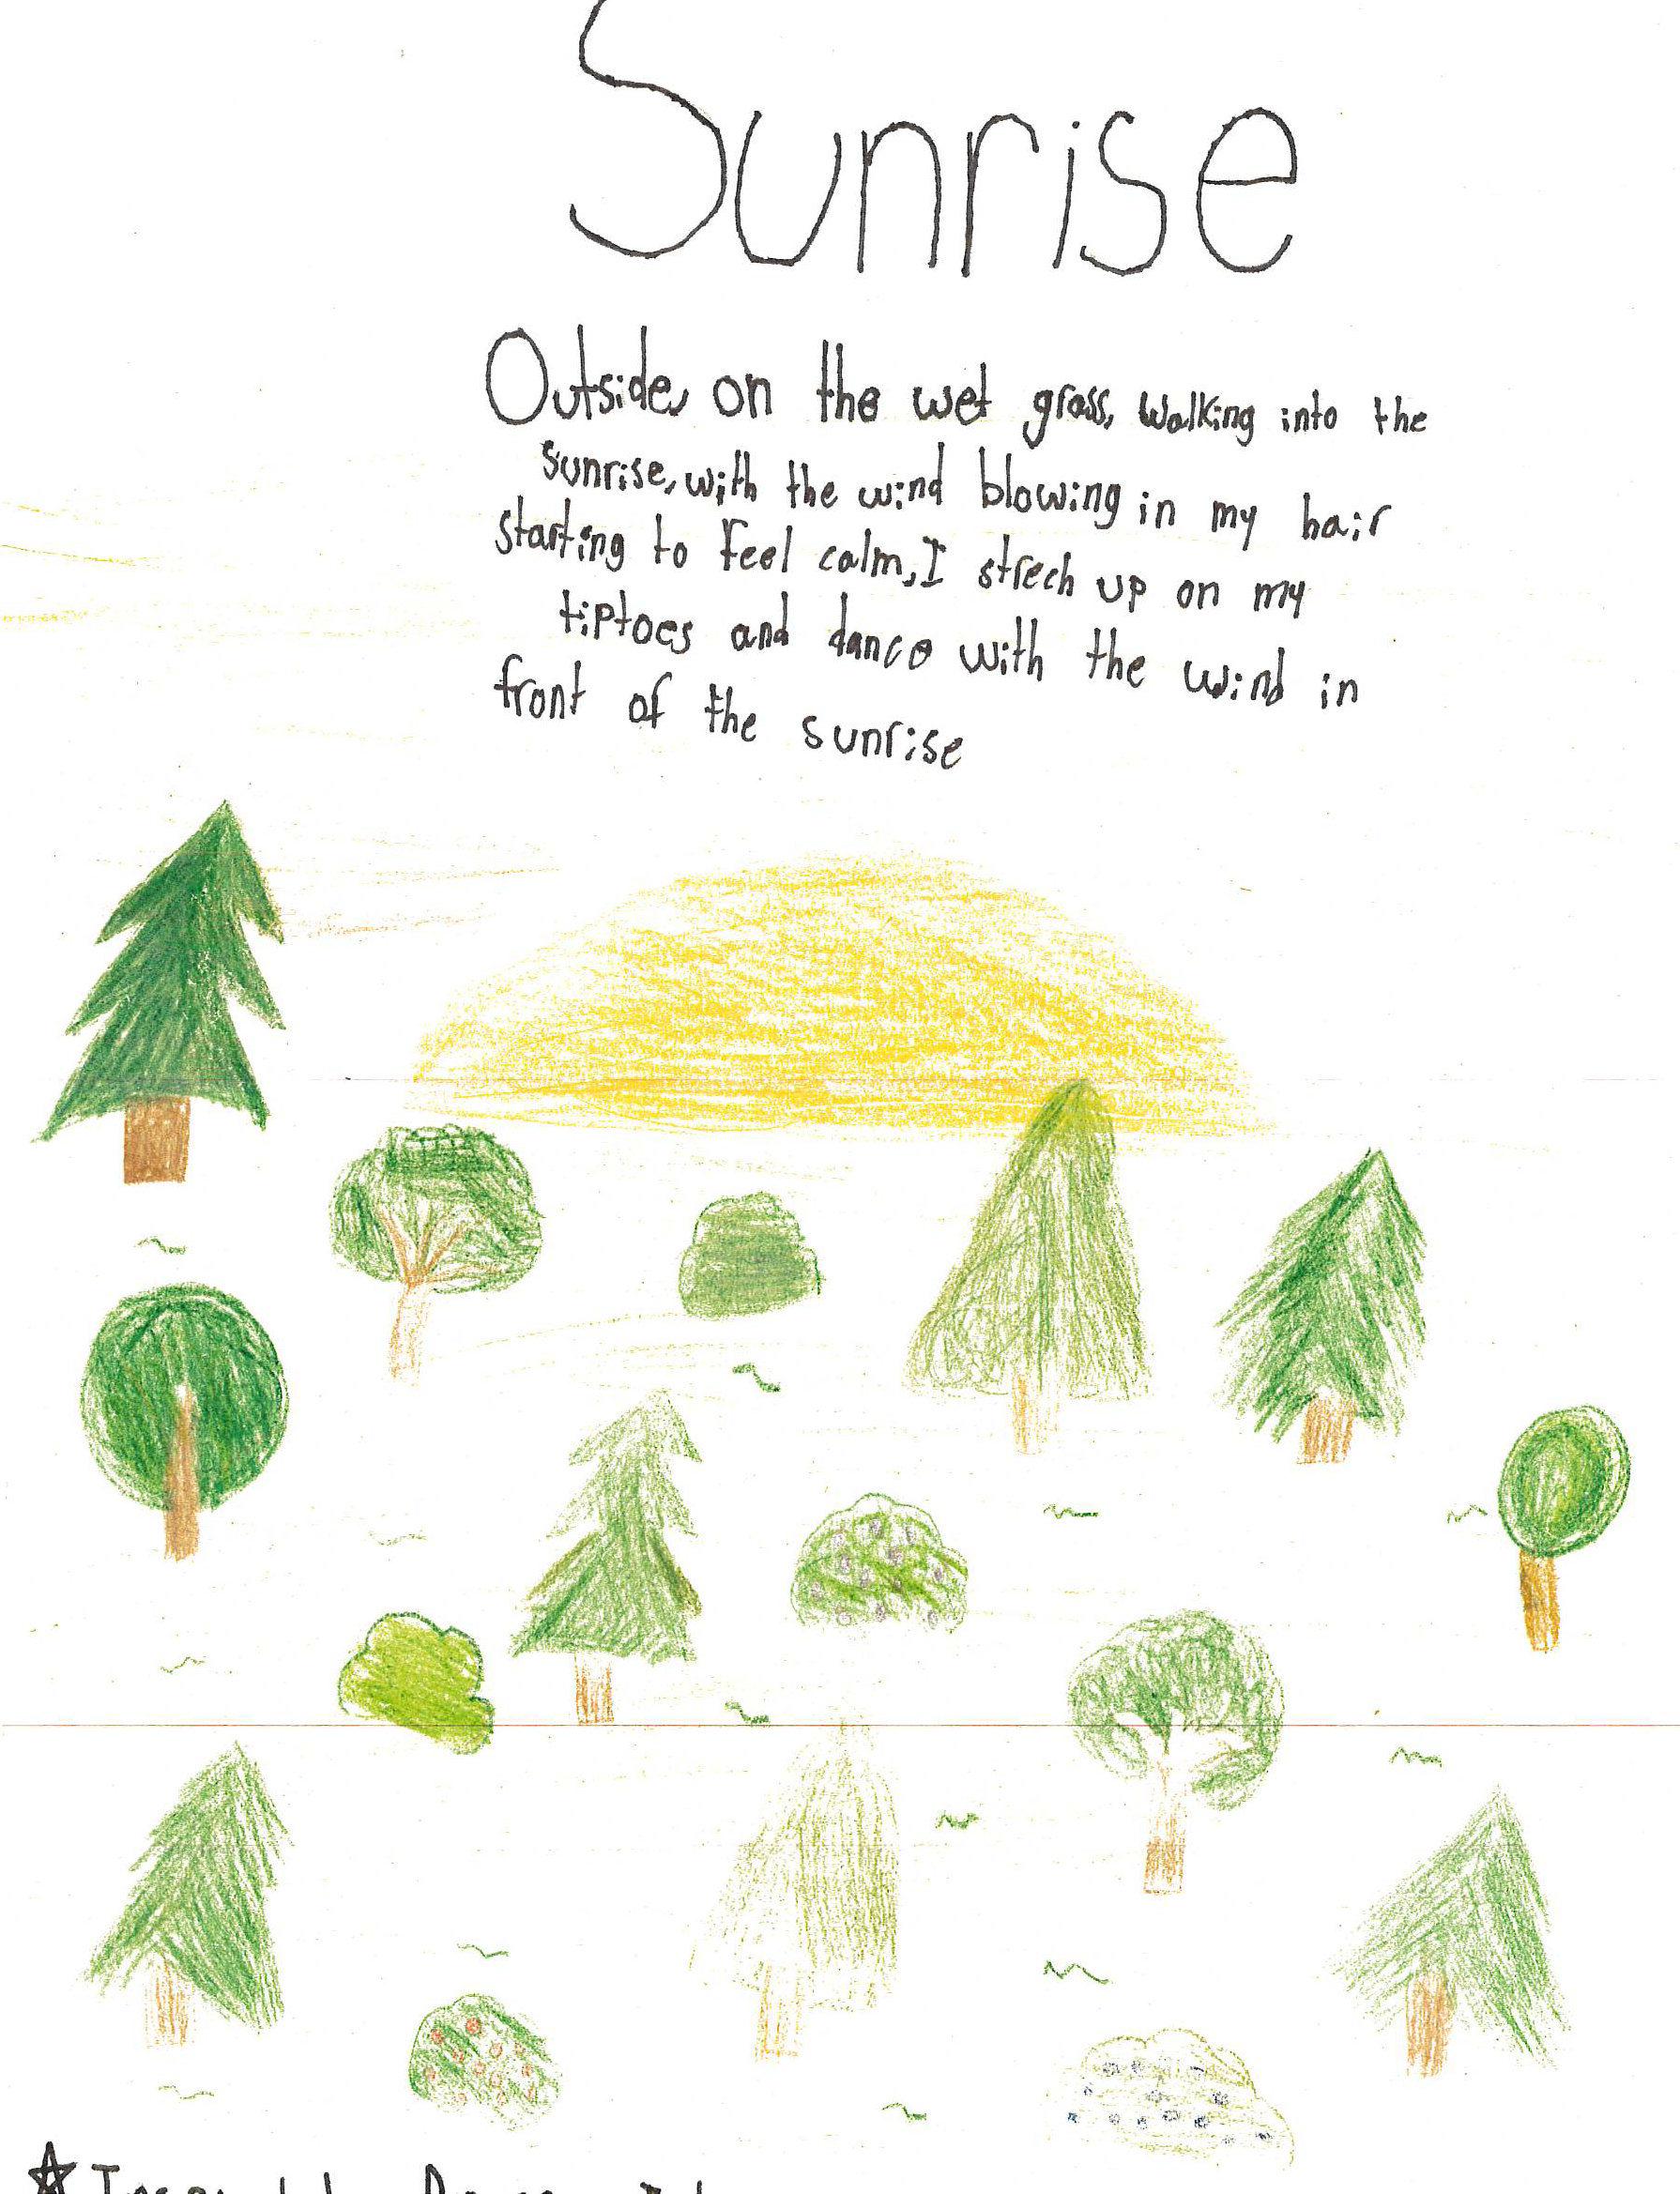 Sunrise
Outside, on the wet grass, walking into the
sunrise, with the wind blowing in my hair
starting to feel calm, I strech up on my
tiptoes and dance with the wind in
front of the sunrise